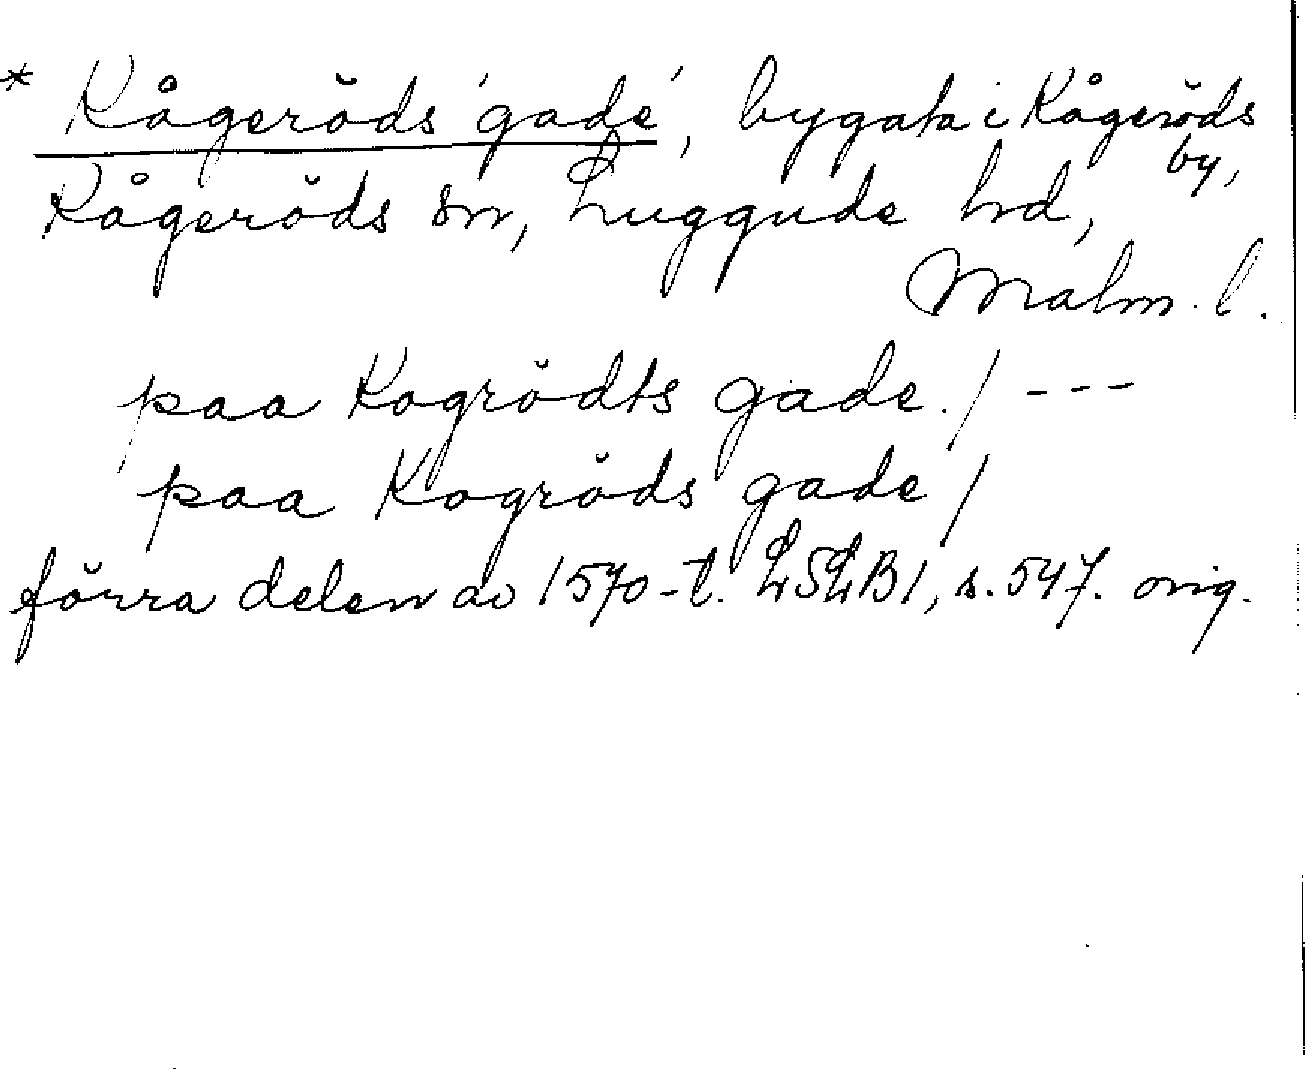 * Kågeröds 'gade', bygata i Kågeröds by,
Kågeröds sn, Luggude hd,
Malm. l.
paa Kogrödts gade. / ---
paa Kogröds gade /
förra delen av 1570-t. LSLB 1, s. 547. orig.